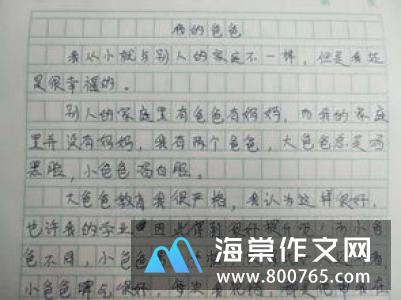 我的爸爸
我从小就与别人的家庭不一样,但是我还
是很幸福的。
别人的家庭里有爸爸有妈妈,而我的家庭
里并没有妈妈,我有两个爸爸,大爸爸总是唱
黑脸,小爸爸唱白脸。
大爸爸教育我很严格,我认为这样很好,
也许我的学业因此得到很好提升吧,而小爸
爸不同,小爸爸
小爸爸脾气很好,每次我犯错,都是他
海棠作文网
www.800765.com